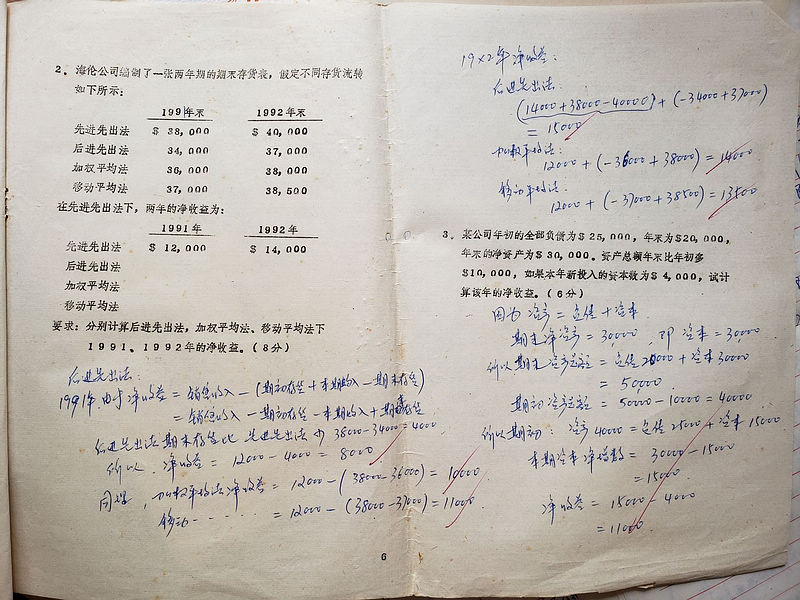 2。海伦公司编制了一张两年期的期末存货表，假定不同存货流转
如下所示：
199年末 1992年末
先进先出法 $ 38，000 $ 40，000
后进先出法 34，000 37，000
加权平均法 36，000 38，000
移动平均法 37，000 38，500
在先进先出法下，两年的净收益为：
1991年 1992年
先进先出法 $ 12，000 $ 14，000
后进先出法
加权平均法
移动平均法
要求：分别计算后进先出法，加权平均法、移动平均法下
1991、1992年的净收益。（8分）
后进先出法：
1991年.由于净收益 = 销售收入 － (期初存货 + 本期购入 － 期末存货)
= 销售收入 － 期初存货 － 本期购入 + 期末存货
后进先出法期末存货比先进先出法少 38000-34000=4000
所以.净收益 = 12000 - 4000 = 8000
同理，加权平均法净收益 = 12000 - (38000-36000) = 10000
移动 - - ...... = 12000 - (38000-37000) = 11000
6
19×2年净收益：
后进先出法：
(14000+38000-40000) + (-34000+37000)
= 15000
加权平均法：
12000 + (-36000+38000) = 14000
移动平均法：
12000 + (-37000+38500) = 13500
3。某公司年初的全部负债为$ 25，000，年末为$20，000，
年末的净资产为$ 30，000。资产总额年末比年初多
$10，000，如果本年新投入的资本数为$ 4，000，试计
算该年的净收益。（6分）
因为 资产 = 负债 + 资本
期末净资产 = 30000，即 资本 = 30000
所以期末资产总额 = 负债20000 + 资本30000
= 50000
期初资产总额 = 50000 - 10000 = 40000
所以期初：资产40000 = 负债25000 + 资本15000
本期资本净增数 = 30000 - 15000
= 15000
净收益 = 15000 - 4000
= 11000